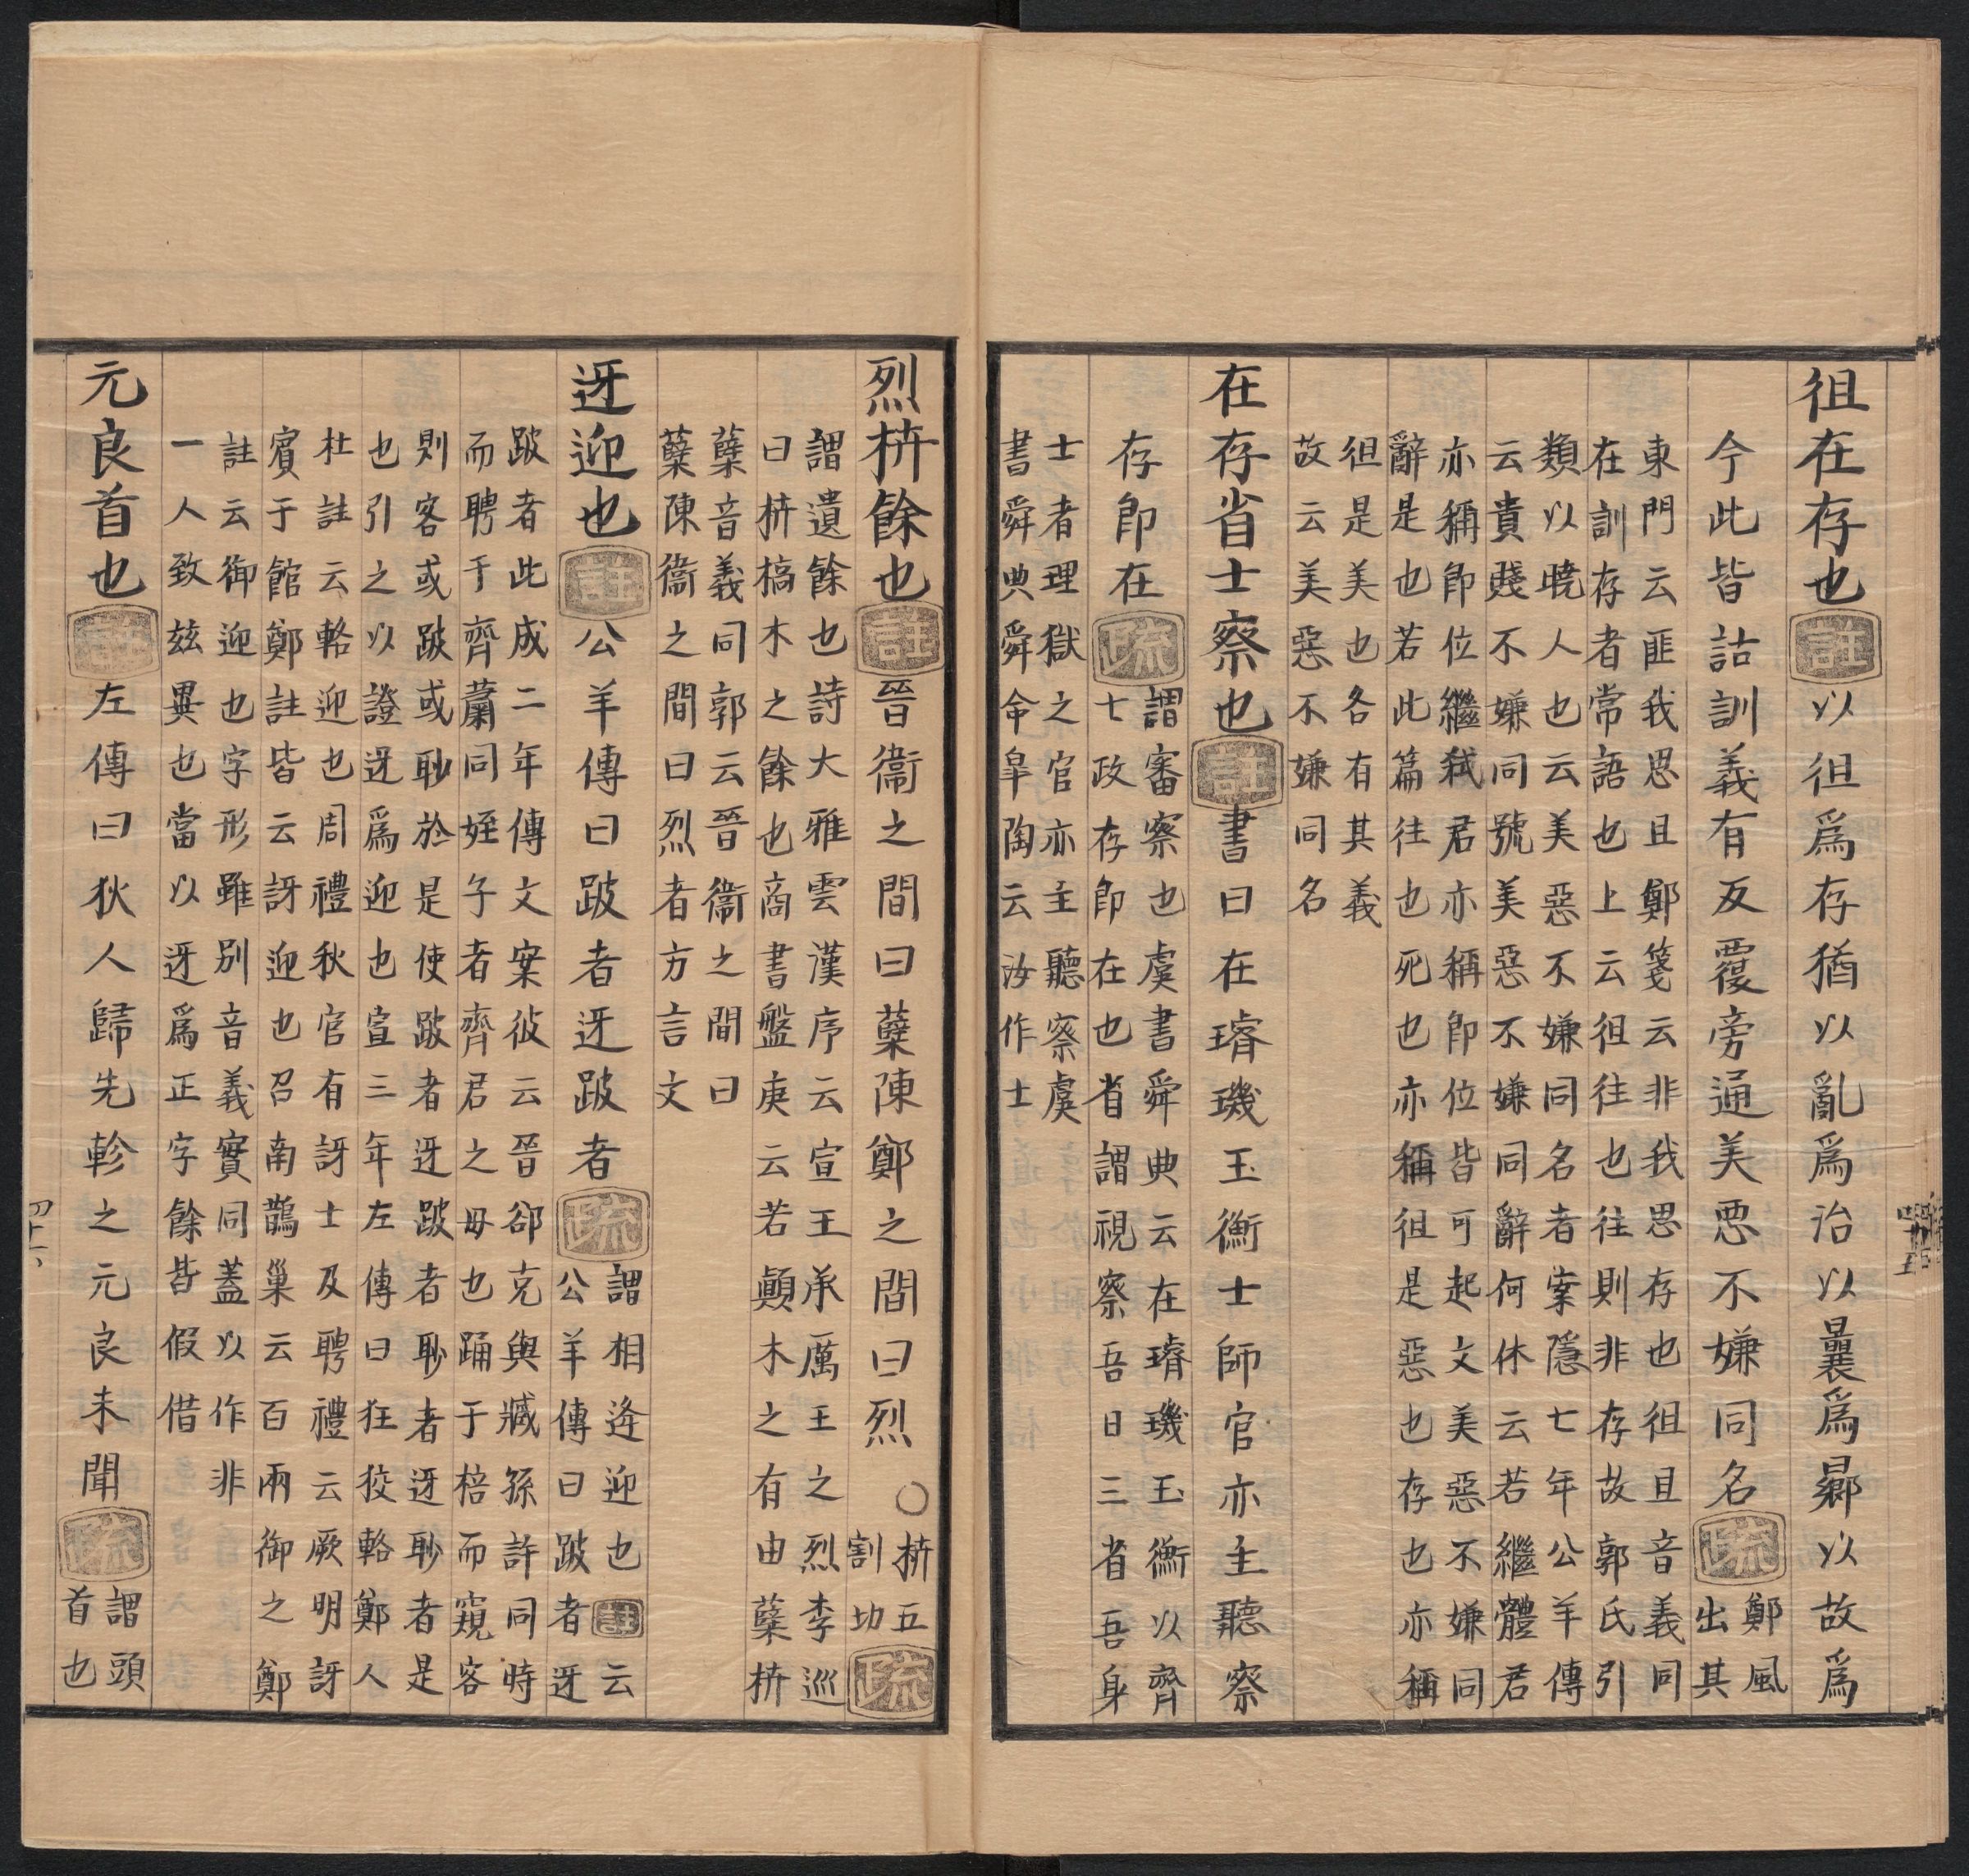 徂在存也註以徂爲存猶以亂爲治以曩爲曏以故爲
今此皆詁訓義有反覆旁通美惡不嫌同名疏鄭風
出其
東門云匪我思且鄭箋云非我思存也徂且音義同
在訓存者常語也上云徂往也往則非存故郭氏引
類以曉人也云美惡不嫌同名者案隱七年公羊傳
云貴賤不嫌同號美惡不嫌同辭何休云若繼體君
亦稱即位繼弒君亦稱即位皆可起文美惡不嫌同
辭是也若此篇往也死也亦稱徂是惡也存也亦稱
徂是美也各有其義
故云美惡不嫌同名
在存省士察也註書曰在璿璣玉衡士師官亦主聽察
存即在疏謂審察也虞書舜典云在璿璣玉衡以齊
七政存即在也省謂視察吾日三省吾身
士者理獄之官亦主聽察虞
書舜典舜命皋陶云汝作士
四十五
烈枿餘也註晉衞之間曰蘖陳鄭之間曰烈○枿五
割切疏
謂遺餘也詩大雅雲漢序云宣王承厲王之烈李巡
曰枿槁木之餘也商書盤庚云若顛木之有由蘖枿
蘖音義同郭云晉衞之間曰
蘖陳衞之間曰烈者方言文
迓迎也註公羊傳曰跛者迓跛者疏謂相逢迎也註云
公羊傳曰跛者迓
跛者此成二年傳文案彼云晉郤克與臧孫許同時
而聘于齊蕭同姪子者齊君之母也踊于棓而窺客
則客或跛或眇於是使跛者迓跛者眇者迓眇者是
也引之以證迓爲迎也宣三年左傳曰狂狡輅鄭人
杜註云輅迎也周禮秋官有訝士及聘禮云厥明訝
賓于館鄭註皆云訝迎也召南鵲巢云百兩御之鄭
註云御迎也字形雖別音義實同蓋以作非
一人致玆異也當以迓爲正字餘皆假借
元良首也註左傳曰狄人歸先軫之元良未聞疏謂頭
首也
四十六